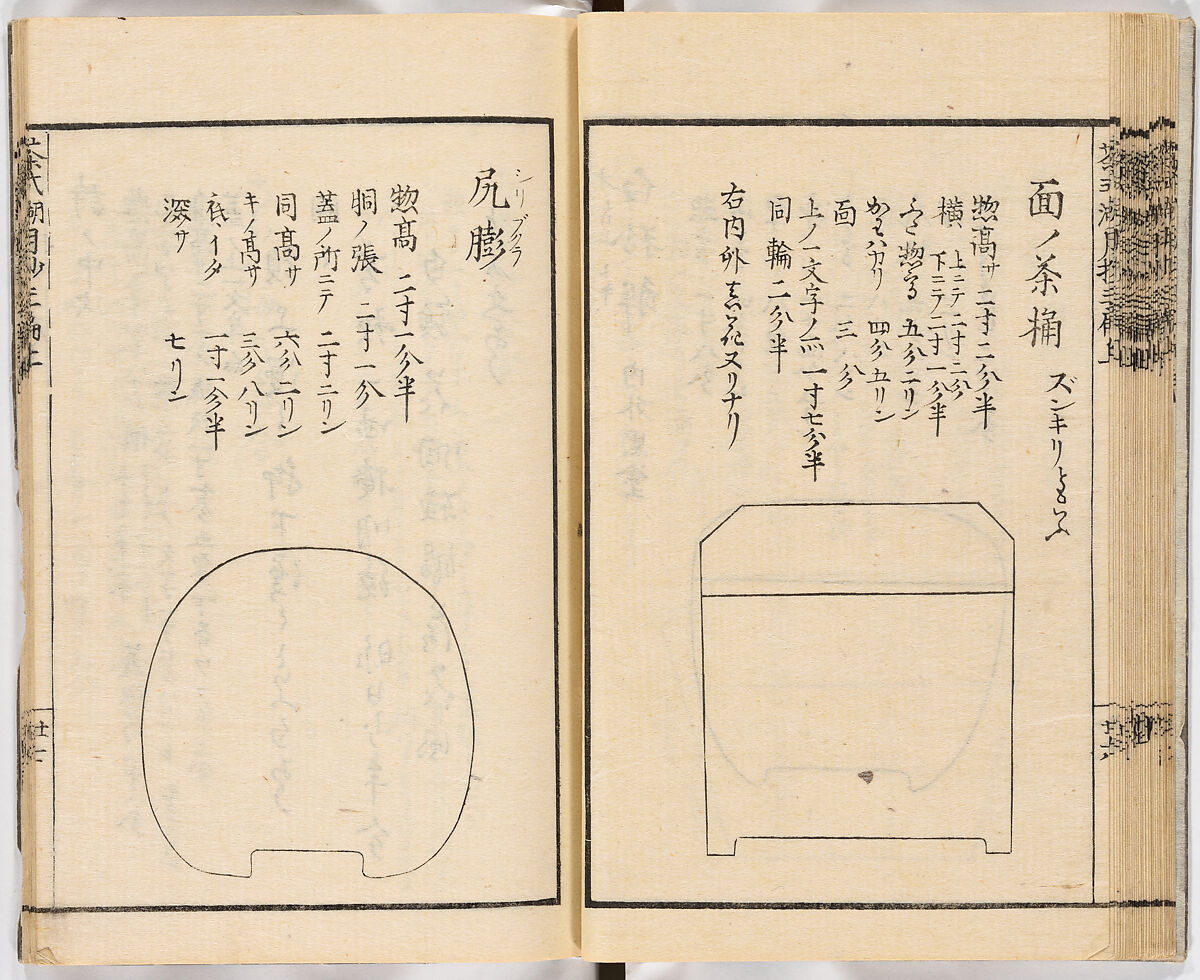 面ノ茶桶 ズンキリともいふ
惣高サ 二寸二分半
横 上ニテ二寸二分
下ニテ二寸一分半
ふた惣高 五分二リン
かゝハカリ 四分五リン
面 三分
上ノ一文字ノ所 一寸七分半
同輪 二分半
右内外真花又リナリ
尻膨
シリブクラ
惣高 二寸一分半
胴ノ張 二寸一分
蓋ノ所ニテ 二寸二リン
同高サ 六分二リン
キノ高サ 三分八リン
底イタ 一寸一分半
深サ 七リン
茶式湖月抄三編上
廿七